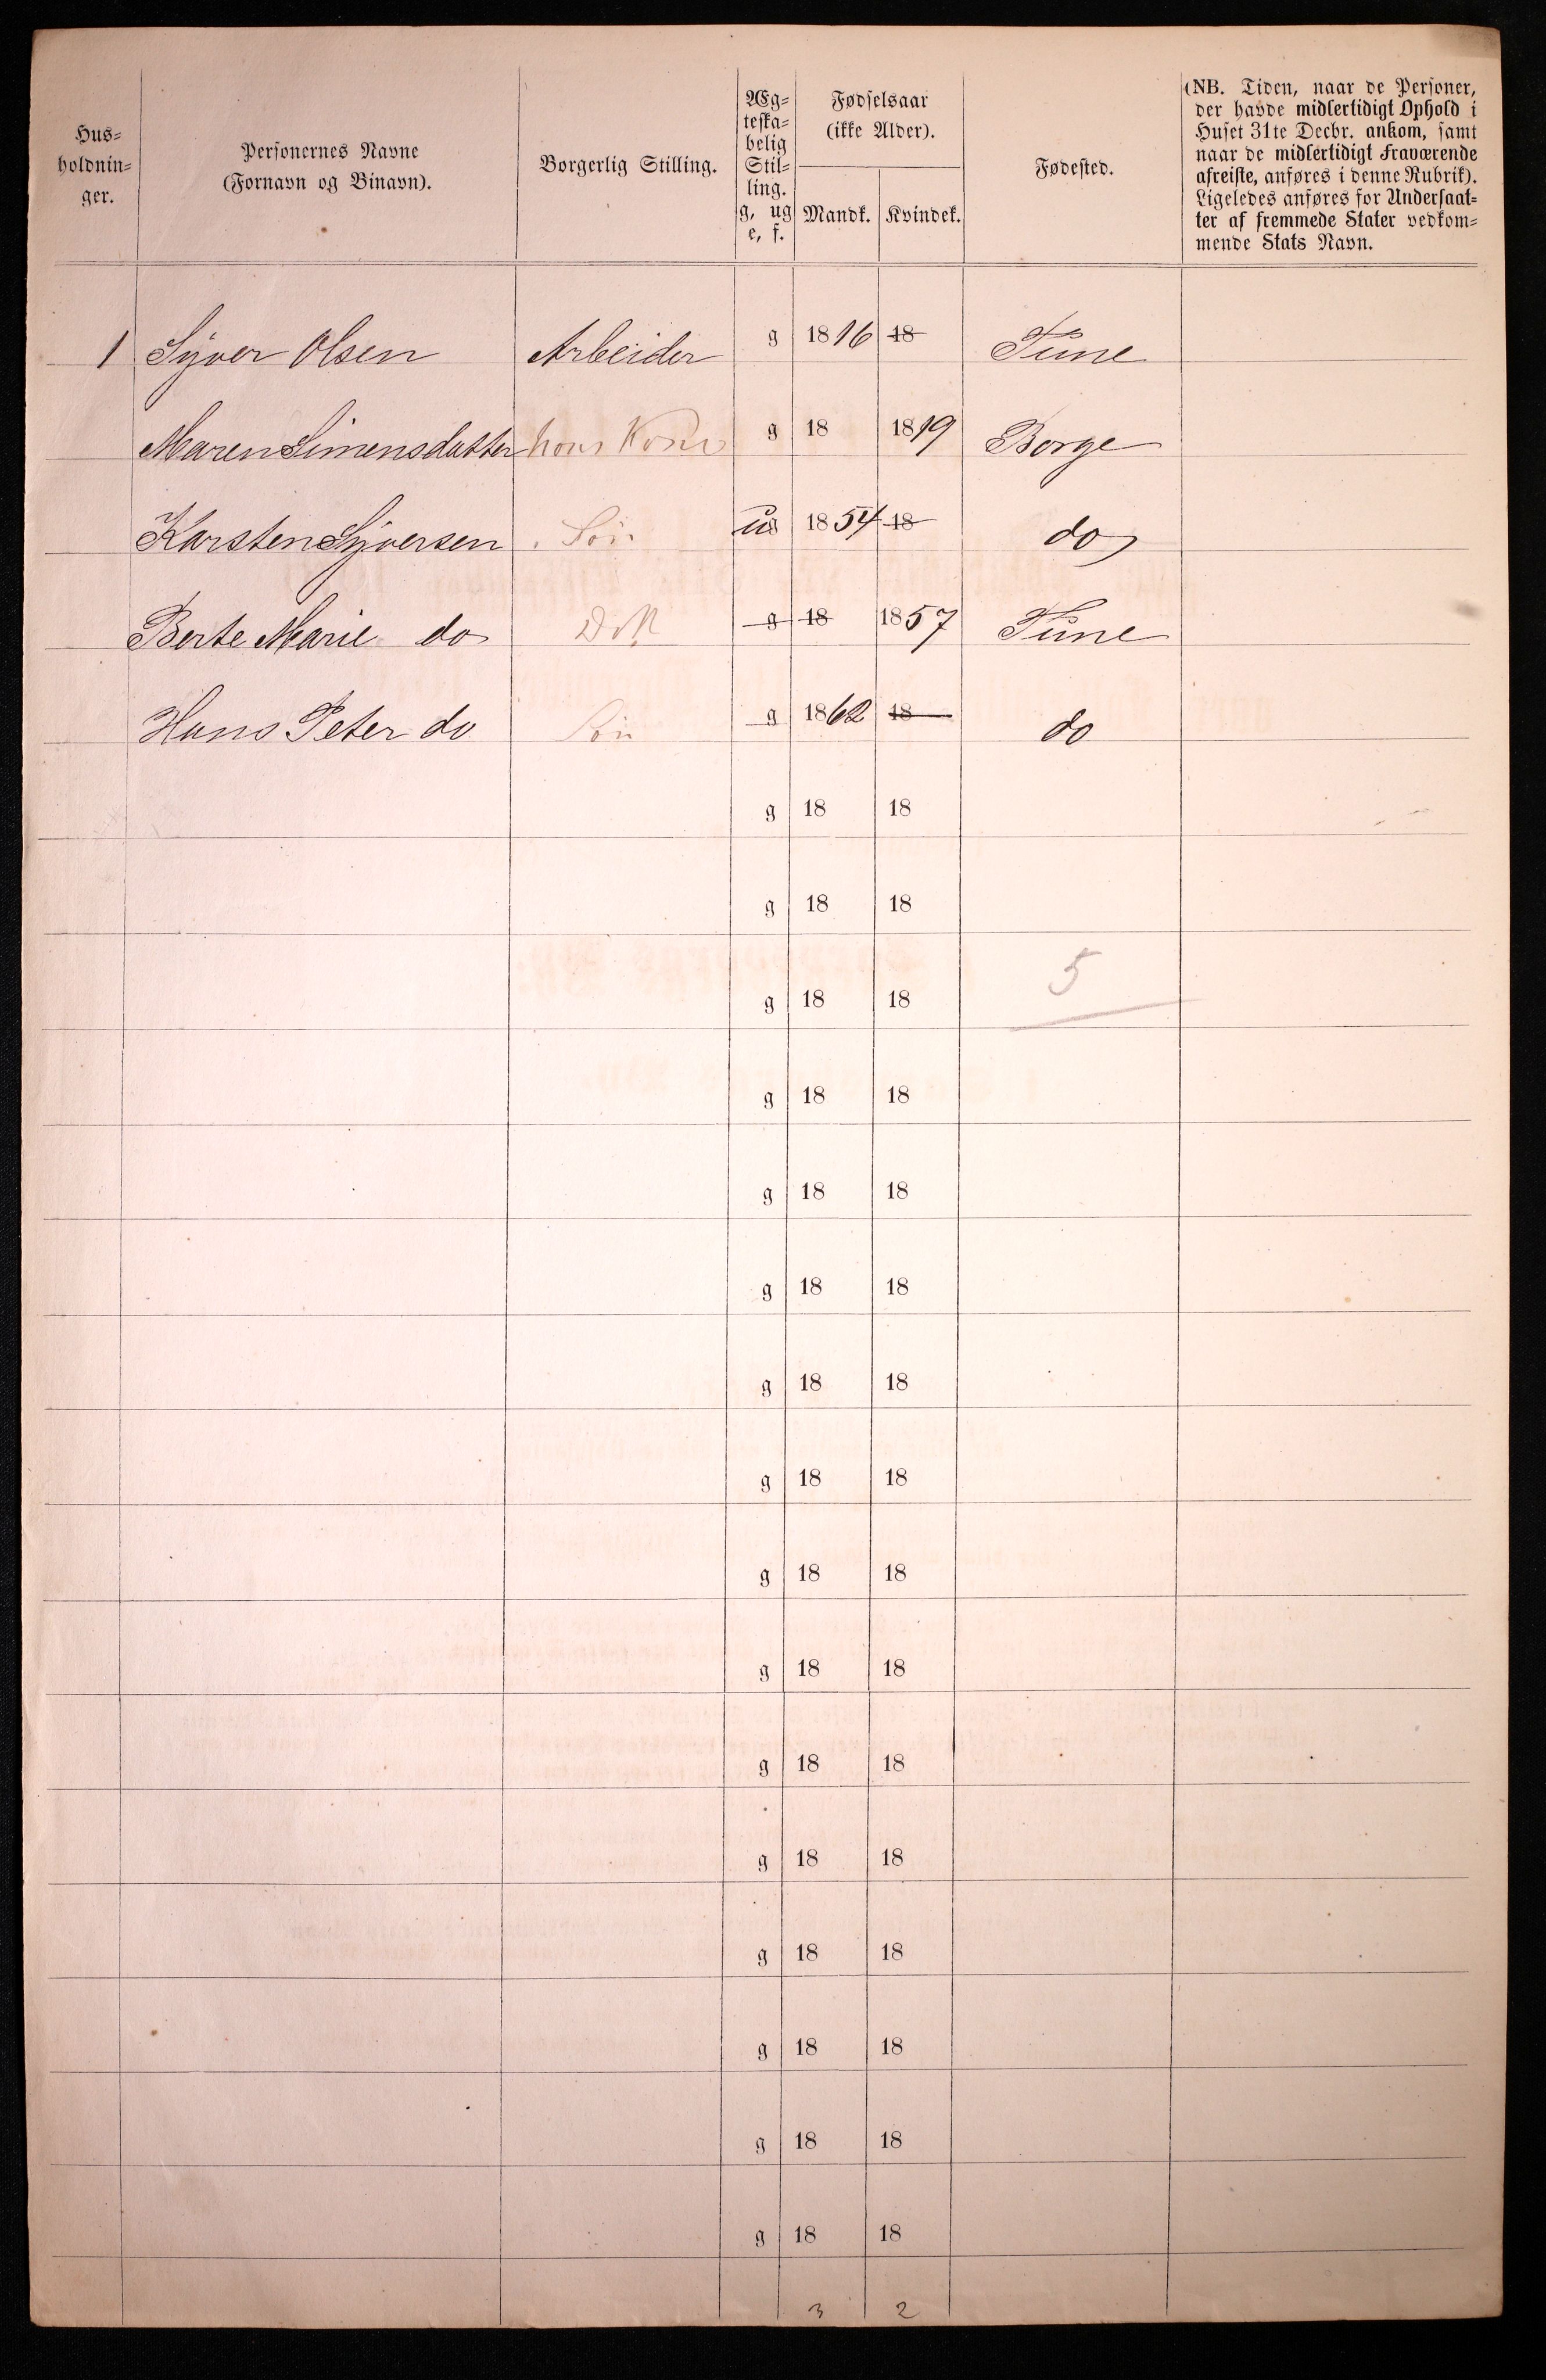 Hus-
holdnin-
ger.
Personernes Navne
(Fornavn og Binavn).
Borgerlig Stilling.
Æg-
teska-
belig
Stil-
ling.
g, ug
e, f.
Fødselsaar
(ikke Alder).
Mandk. Kvindek.
Fødested.
(NB. Tiden, naar de Personer,
der havde midlertidigt Ophold i
Huset 31te Decbr. ankom, samt
naar de midlertidigt Fraværende
afreiste, anføres i denne Rubrik).
Ligeledes anføres for Undersaat-
ter af fremmede Stater vedkom-
mende Stats Navn.
1 Syver Olsen Arbeider g 1816 18 Tune
Maren Simensdatter hans Kone g 18 1819 Borge
Karsten Syversen Søn ug 1854 18 do
Berte Marie do Dtt g 18 1857 Tune
Hans Peter do Søn g 1862 18 do
g 18 18
g 18 18
5
g 18 18
g 18 18
g 18 18
g 18 18
g 18 18
g 18 18
g 18 18
g 18 18
g 18 18
g 18 18
g 18 18
g 18 18
g 18 18
g 18 18
3 2